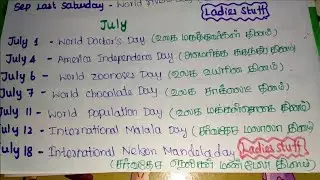 Sep Last Saturday - World
Ladies Stuff
July
July 1 - World Doctor's Day (உலக மருத்துவர்கள் தினம்)
July 4 - America Independence Day (அமெரிக்க சுதந்திர தினம்)
July 6 - World zoonoses Day (உலக தினம்)
July 7 - World chocolate Day (உலக சாக்லேட் தினம்)
July 11 - World Population Day (உலக மக்கள்தொகை தினம்)
July 12 - International Malala Day (சர்வதேச மலாலா தினம்)
July 18 - International Nelson Mandela day Ladies Stuff
(சர்வதேச நெல்சன் மண்டேலா தினம்)